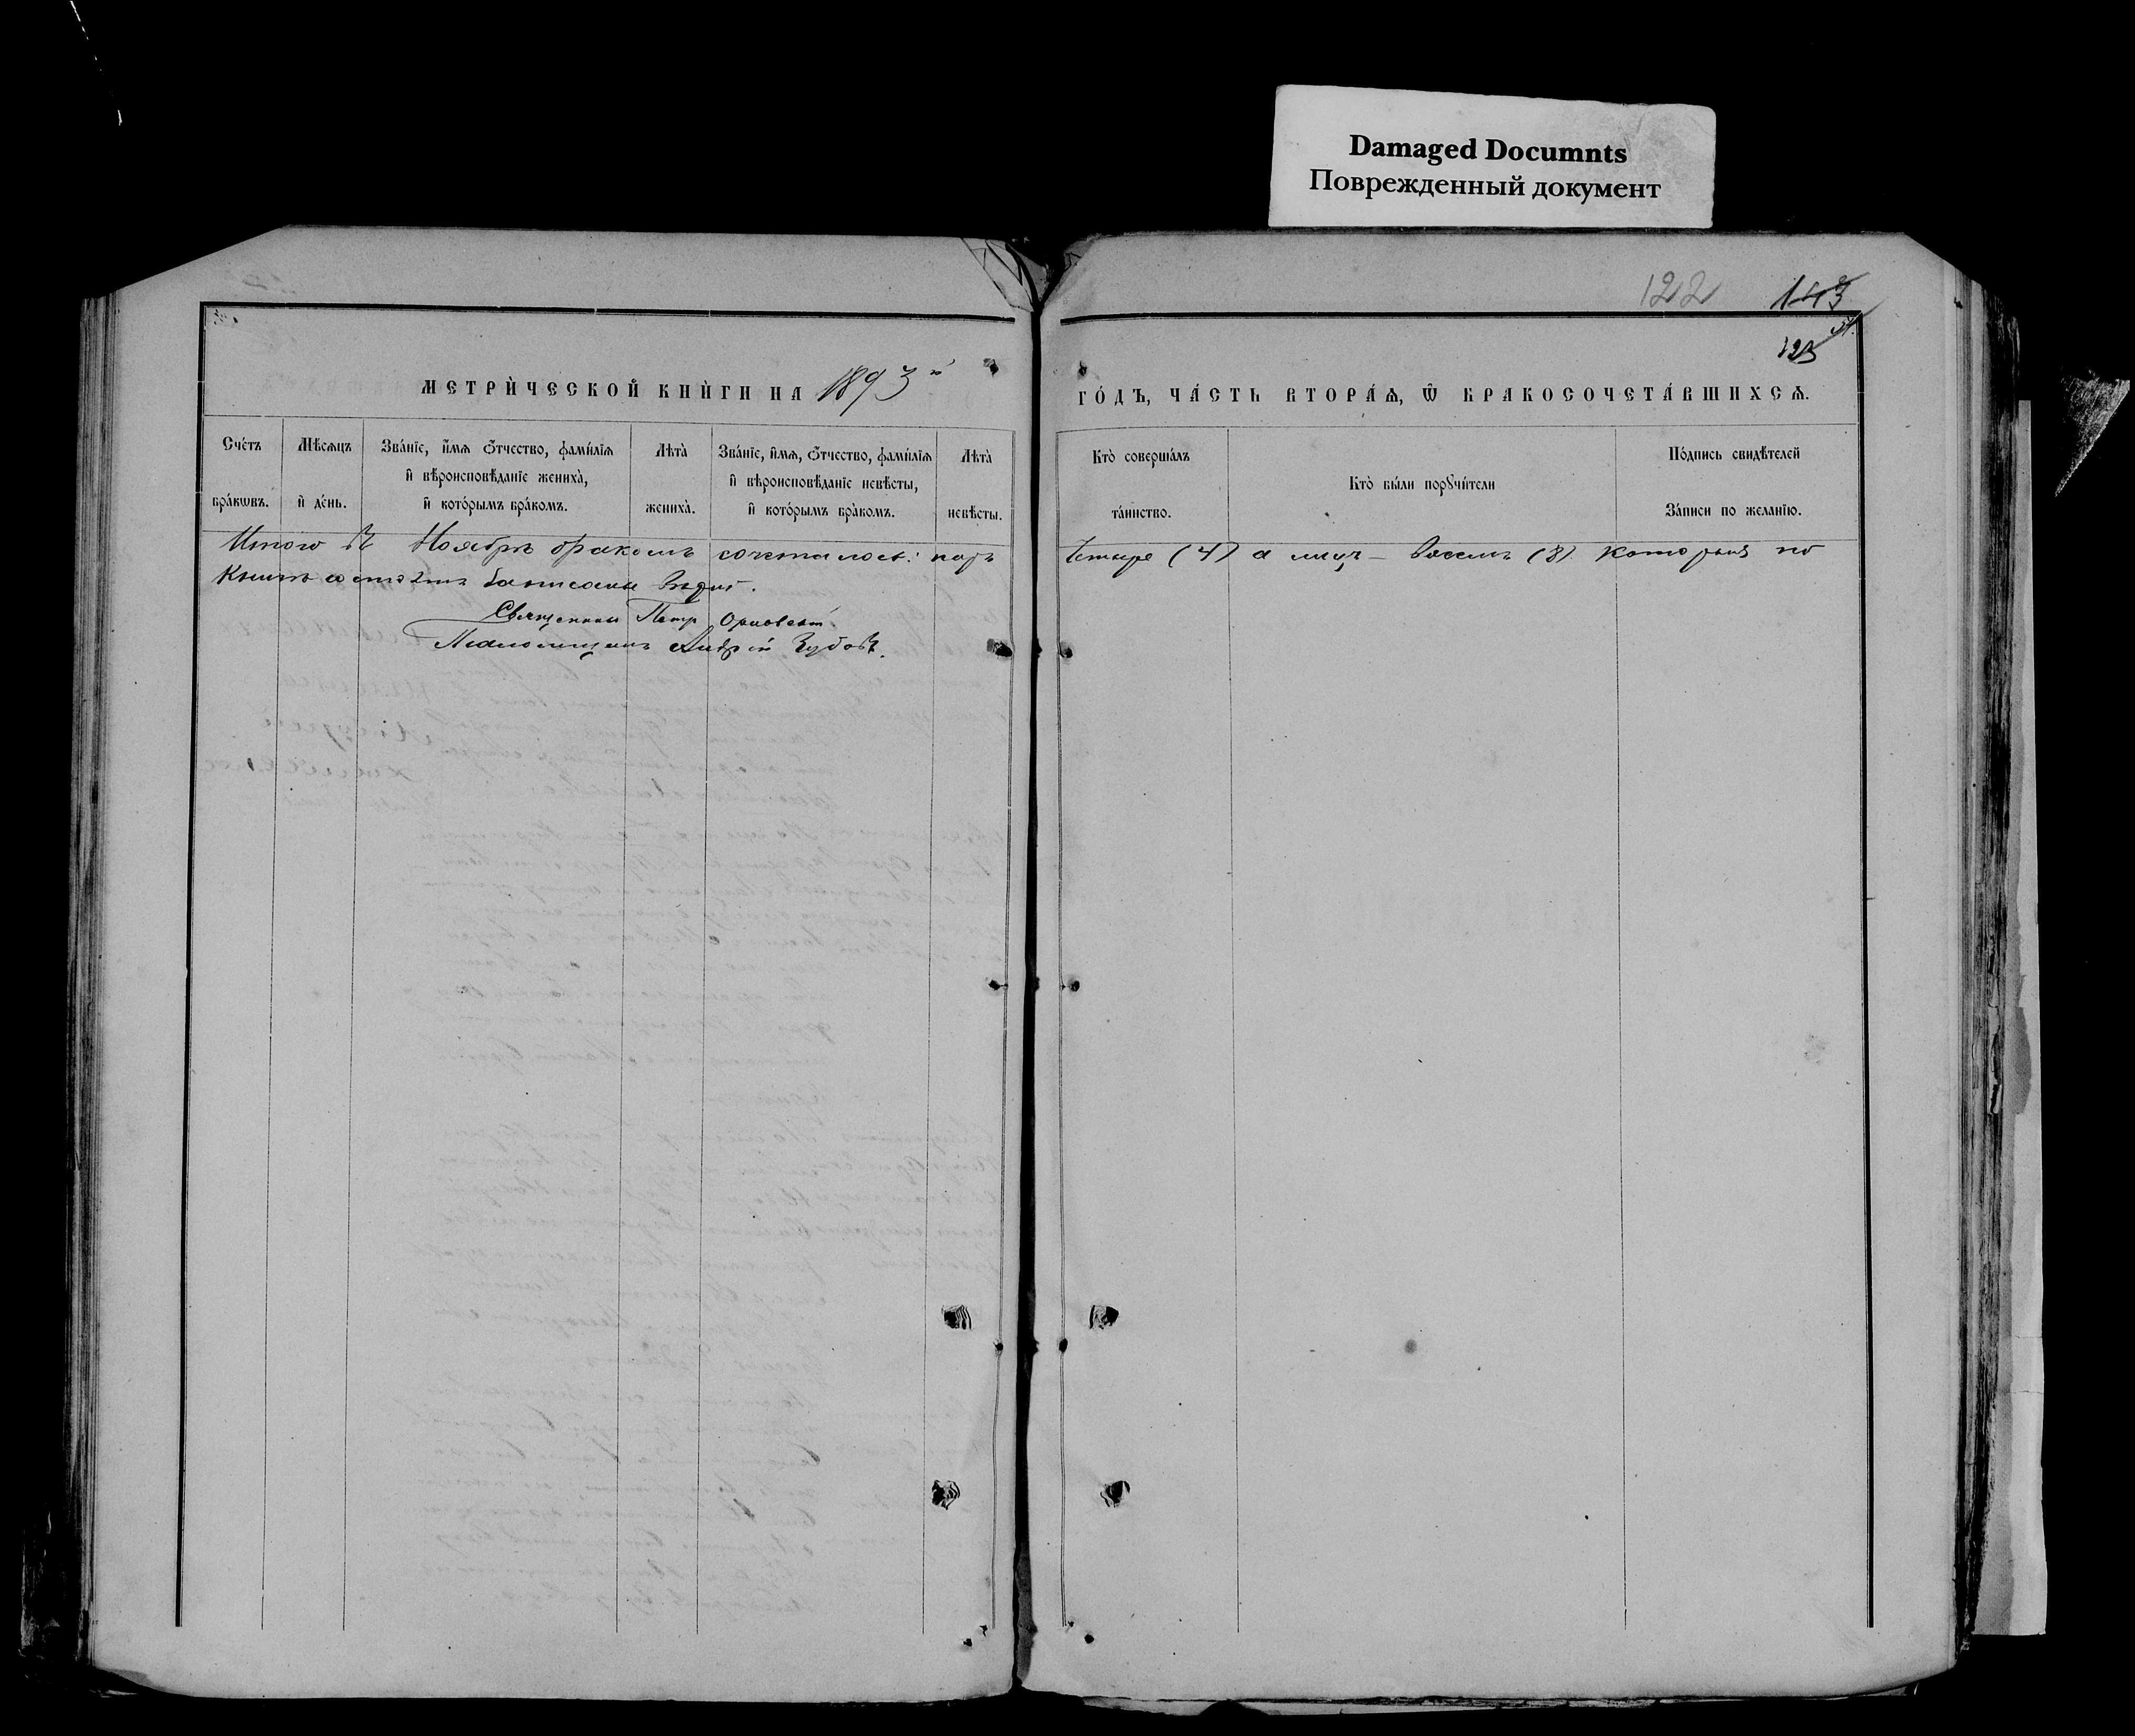 Damaged Documnts
Поврежденный документ
122 143
123
МЕТРИ́ЧЕСКОЙ КНИ́ГИ НА 1893й ГО́ДЪ, ЧА́СТЬ ВТОРА́Ѧ, Ѽ БРАКОСОЧЕТА́ВШИХСѦ.
Сче́тъ бра́кѡвъ.
Мѣ́сѧцъ и҆ де́нь.
Зва́нїе, и҆́мѧ ѻ҆́тчество, фами́лїѧ
и҆ вѣроисповѣ́данїе жениха̀,
и҆ кото́рымъ бра́комъ.
Лѣта̀ жениха̀.
Зва́нїе, и҆́мѧ, ѻ҆́тчество, фами́лїѧ
и҆ вѣроисповѣ́данїе невѣ́сты,
и҆ кото́рымъ бра́комъ.
Лѣта̀ невѣ́сты.
Кто̀ соверша́лъ та́инство.
Кто̀ бы́ли порꙋчи́тели
По́дпись свидѣ́телей
За́писи по жела́нїю.
Итого въ Ноябрѣ бракомъ сочеталось: паръ четыре (4) а лицъ – восемь (8) которыя по
записаны вѣрно.
Священникъ Петр
Псаломщикъ Андрей Зубовъ.